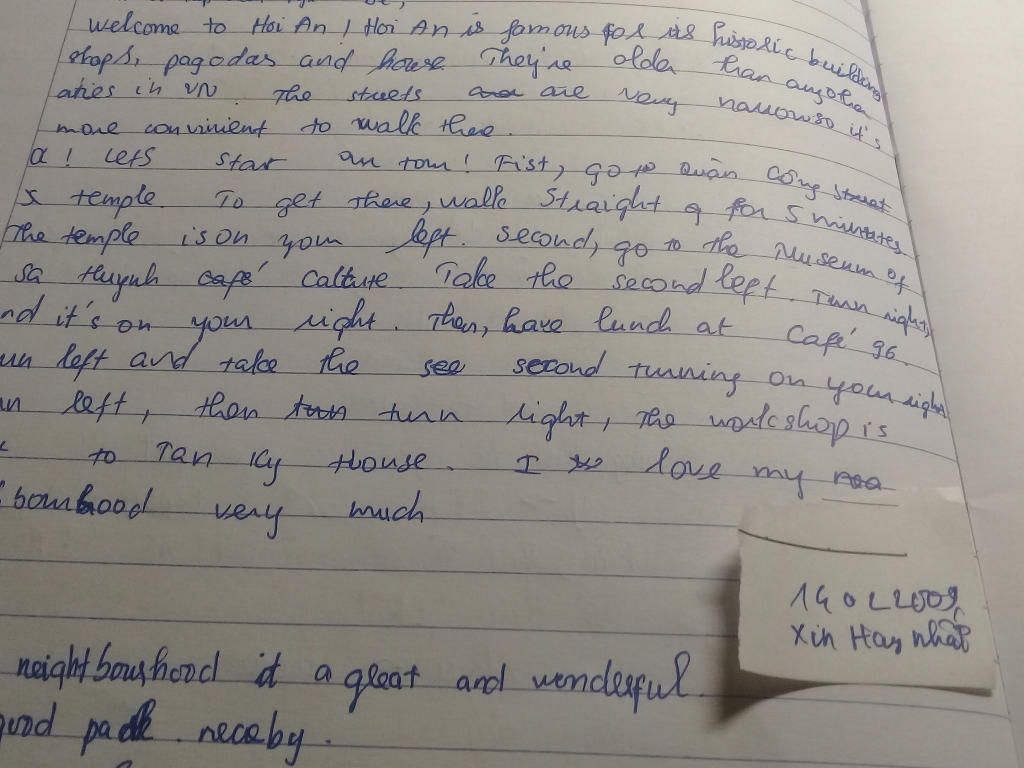 welcome to Hoi An / Hoi An is famous for its historic building
shops, pagodas and house They're older than anyother
cities in VN. The streets are very narrow so it's
more convinient to walk there.
a! Lets star an tour! Fist, go to Quan Công
s temple. To get there, walk Straight for 5 minutes
The temple is on your left. second, go to the Museum of
sa Huynh Calture. Take the second left. Turn right,
nd it's on your right. Then, have lunch at Café 96.
un left and take the second turning on your right
n left, then turn right, The workshop is
to Tan Ky House. I love my
bourhood very much
neightbourhood it a great and wonderful.
good neceby.
14022009
Xin Hay nhất